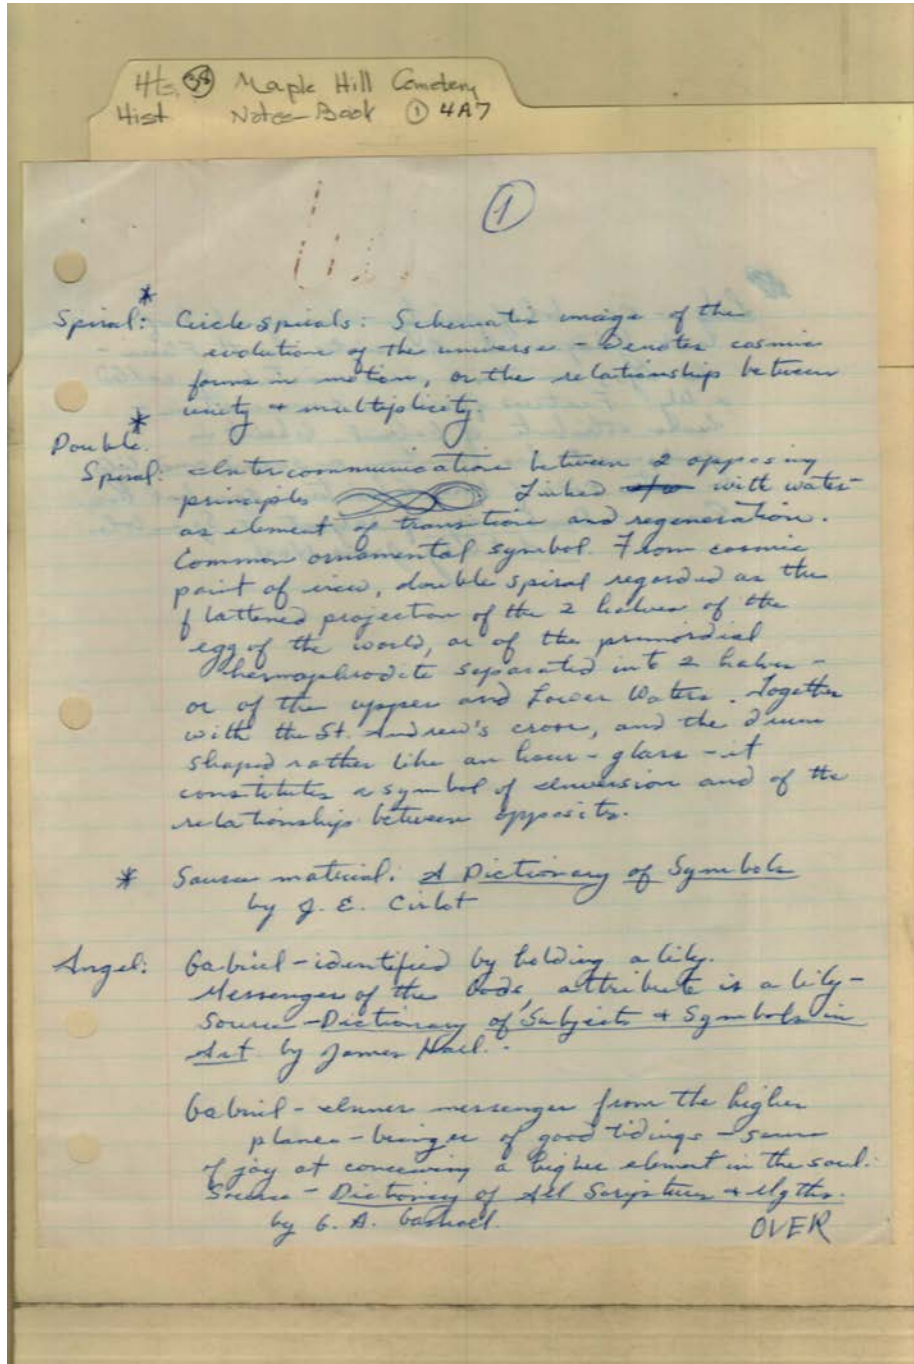 Hts. 38 Maple Hill Cemetery
Hist Notes-Book ① 4A7
①
Spiral:* Circle spirals: Schematic image of the
evolution of the universe - Denotes cosmic
forms in motion, or the relationship between
unity + multiplicity.
Double*
Spiral: Intercommunication between 2 opposing
principles Linked with water
as element of transition and regeneration.
Common ornamental symbol. From cosmic
point of view, double spiral regarded as the
flattened projection of the 2 halves of the
egg of the world, or of the primordial
hermaphrodite separated into 2 halves -
or of the upper and Lower Waters. Together
with the St. Andrew's cross, and the drum
shaped rather like an hour-glass - it
constitutes a symbol of Inversion and of the
relationships between opposites.
* Source material: A Dictionary of Symbols
by J. E. Cirlot
Angel: Gabriel - identified by holding a lily.
Messenger of the Gods, attribute is a lily -
Source - Dictionary of Subjects + Symbols in
Art by James Hall.
Gabriel - Inner messenger from the higher
planes - bringer of good tidings - sense
of joy at conceiving a higher element in the soul.
Source - Dictionary of All Scriptures + Myths.
by G. A. Gaskell.
OVER